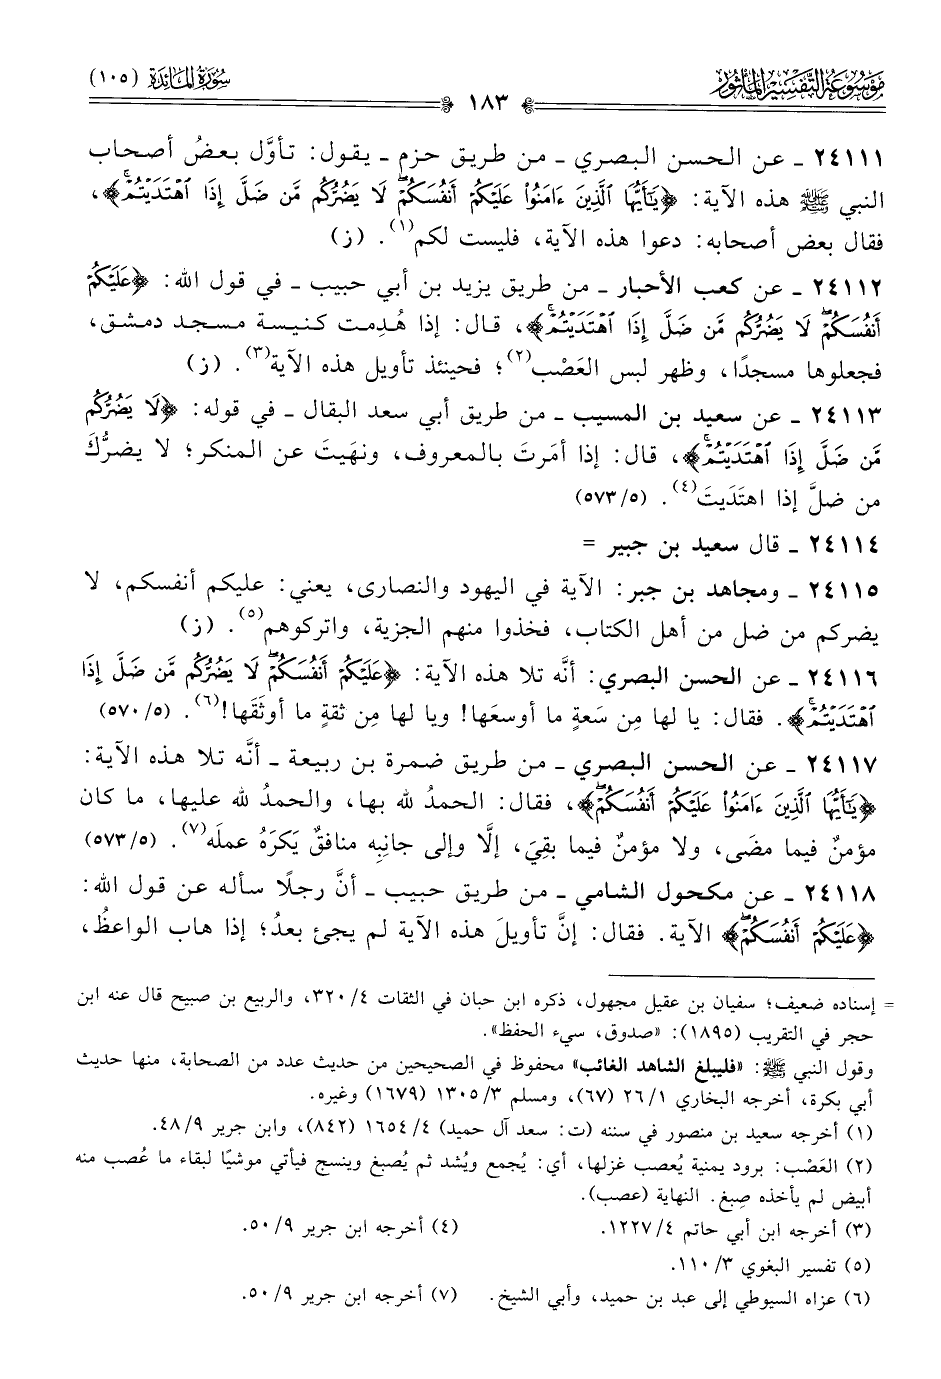 مَوْسُوعَةُ التَّفْسِيرِ المَأْثُورِ
١٨٣
سُورَةُ المَائِدَة (١٠٥)
٢٤١١١ ـ عن الحسن البصري ـ من طريق حزم ـ يقول: تأوَّل بعضُ أصحاب
النبي ﷺ هذه الآية: ﴿يَٰٓأَيُّهَا ٱلَّذِينَ ءَامَنُوا۟ عَلَيْكُمْ أَنفُسَكُمْۖ لَا يَضُرُّكُم مَّن ضَلَّ إِذَا ٱهْتَدَيْتُمْۚ﴾،
فقال بعض أصحابه: دعوا هذه الآية، فليست لكم(١). (ز)
٢٤١١٢ ـ عن كعب الأحبار ـ من طريق يزيد بن أبي حبيب ـ في قول الله: ﴿عَلَيْكُمْ
أَنفُسَكُمْۖ لَا يَضُرُّكُم مَّن ضَلَّ إِذَا ٱهْتَدَيْتُمْۚ﴾، قال: إذا هُدِمت كنيسة مسجد دمشق،
فجعلوها مسجدًا، وظهر لبس العَصْب(٢)؛ فحينئذ تأويل هذه الآية(٣). (ز)
٢٤١١٣ ـ عن سعيد بن المسيب ـ من طريق أبي سعد البقال ـ في قوله: ﴿لَا يَضُرُّكُم
مَّن ضَلَّ إِذَا ٱهْتَدَيْتُمْۚ﴾، قال: إذا أمَرتَ بالمعروف، ونهَيتَ عن المنكر؛ لا يضرُّكَ
من ضلَّ إذا اهتَدَيتَ(٤). (٥/٥٧٣)
٢٤١١٤ ـ قال سعيد بن جبير =
٢٤١١٥ ـ ومجاهد بن جبر: الآية في اليهود والنصارى، يعني: عليكم أنفسكم، لا
يضركم من ضل من أهل الكتاب، فخذوا منهم الجزية، واتركوهم(٥). (ز)
٢٤١١٦ ـ عن الحسن البصري: أنَّه تلا هذه الآية: ﴿عَلَيْكُمْ أَنفُسَكُمْۖ لَا يَضُرُّكُم مَّن ضَلَّ إِذَا
ٱهْتَدَيْتُمْۚ﴾. فقال: يا لها مِن سَعةٍ ما أوسعَها! ويا لها مِن ثقةٍ ما أوثَقَها!(٦). (٥/٥٧٠)
٢٤١١٧ ـ عن الحسن البصري ـ من طريق ضمرة بن ربيعة ـ أنَّه تلا هذه الآية:
﴿يَٰٓأَيُّهَا ٱلَّذِينَ ءَامَنُوا۟ عَلَيْكُمْ أَنفُسَكُمْۖ﴾، فقال: الحمدُ لله بها، والحمدُ لله عليها، ما كان
مؤمنٌ فيما مضَى، ولا مؤمنٌ فيما بقِيَ، إلَّا وإلى جانِبِه منافقٌ يَكرَهُ عملَه(٧). (٥/٥٧٣)
٢٤١١٨ ـ عن مكحول الشامي ـ من طريق حبيب ـ أنَّ رجلًا سأله عن قول الله:
﴿عَلَيْكُمْ أَنفُسَكُمْۖ﴾ الآية. فقال: إنَّ تأويلَ هذه الآية لم يجئ بعدُ؛ إذا هاب الواعظُ،
= إسناده ضعيف؛ سفيان بن عقيل مجهول، ذكره ابن حبان في الثقات ٤/٣٢٠، والربيع بن صبيح قال عنه ابن
حجر في التقريب (١٨٩٥): «صدوق، سيء الحفظ».
وقول النبي ﷺ: «فليبلغ الشاهد الغائب» محفوظ في الصحيحين من حديث عدد من الصحابة، منها حديث
أبي بكرة، أخرجه البخاري ١/٢٦ (٦٧)، ومسلم ٣/١٣٠٥ (١٦٧٩) وغيره.
(١) أخرجه سعيد بن منصور في سننه (ت: سعد آل حميد) ٤/١٦٥٤ (٨٤٢)، وابن جرير ٩/٤٨.
(٢) العَصْب: برود يمنية يُعصب غزلها، أي: يُجمع ويُشد ثم يُصبغ وينسج فيأتي موشيًا لبقاء ما عُصب منه
أبيض لم يأخذه صِبغ. النهاية (عصب).
(٣) أخرجه ابن أبي حاتم ٤/١٢٢٧. (٤) أخرجه ابن جرير ٩/٥٠.
(٥) تفسير البغوي ٣/١١٠.
(٦) عزاه السيوطي إلى عبد بن حميد، وأبي الشيخ. (٧) أخرجه ابن جرير ٩/٥٠.